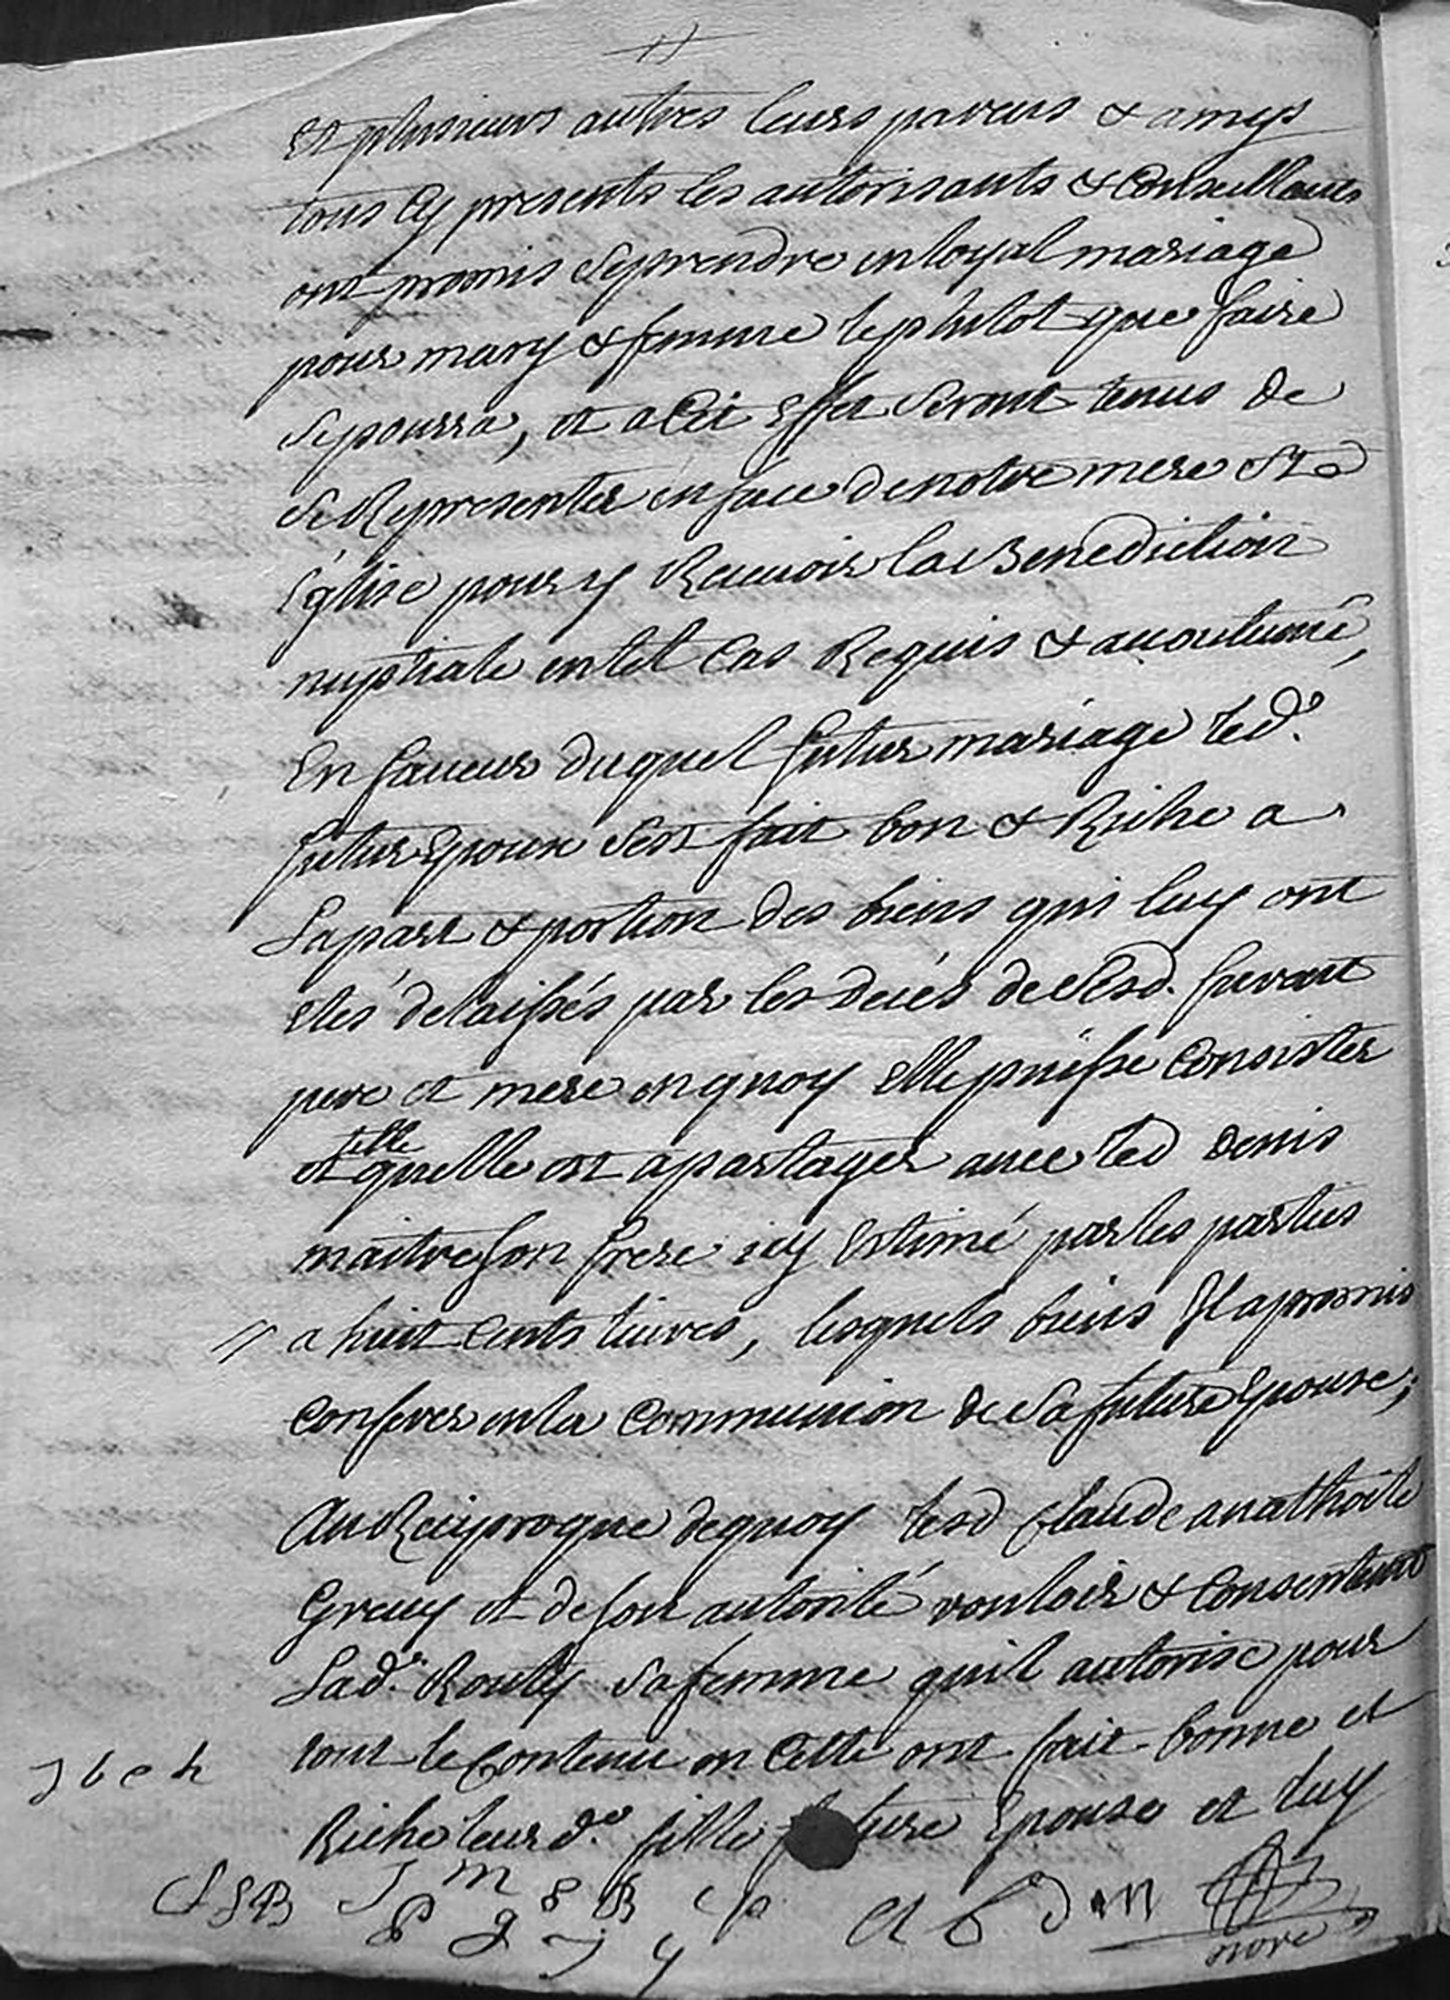 et plusieurs autres leurs parens & amys
tous cy presents les autorisants & conseillants
ont promis se prendre en loyal mariage
pour mary & femme le plutot que faire
se pourra, et a cet effet seront tenus de
se Representer en face de notre mere Ste
Eglise pour y Recevoir la Benediction
nuptiale en tel cas Requis & accoutumé,
En faveur duquel futur mariage led.
futur Epoux s'est fait bon & Riche a
sa part & portion des biens qui luy ont
etés delaissés par les decés de sesd. furent
pere et mere en quoy elle puisse consister
et telle
quelle est a partager avec led denis
maitre son frere icy Estimé par les parties
// a huit cents livres, lesquels biens Il a promis
conferer en la communion de sa future Epouse;
Au Reciproque de quoy lesd Claude anathoile
Grevy et de son autorité vouloir & consentement
Lad. Rouly sa femme qu'il autorise pour
tout le contenu en cette ont fait bonne et
Riche leur de. fille future Epouse et luy
J b c h
C S S B J m 8 B c p a b D m
P g j y
nore